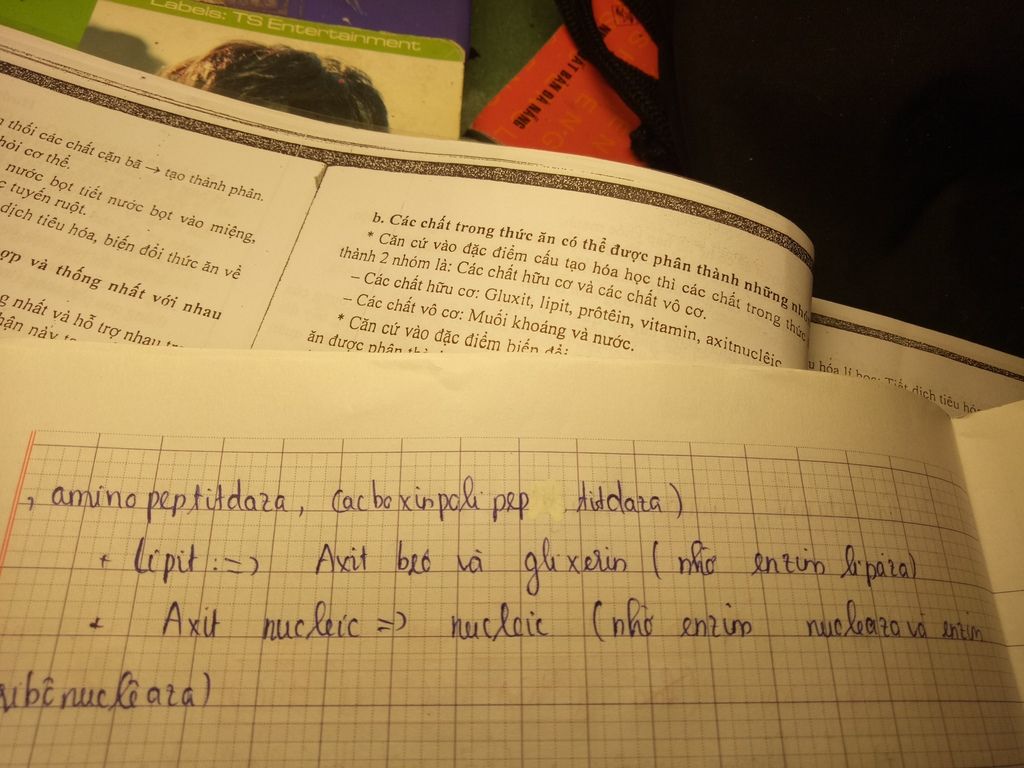 Labels: TS Entertainment
thổi các chất cặn bã → tạo thành phân.
hỏi cơ thể.
nước bọt tiết nước bọt vào miệng,
tuyến ruột.
dịch tiêu hóa, biến đổi thức ăn về
ợp và thống nhất với nhau
nhất và hỗ trợ nhau
b. Các chất trong thức ăn có thể được phân thành những
* Căn cứ vào đặc điểm cấu tạo hóa học thì các chất trong thức
thành 2 nhóm là: Các chất hữu cơ và các chất vô cơ.
– Các chất hữu cơ: Gluxit, lipit, prôtêin, vitamin, axitnuclêic
– Các chất vô cơ: Muối khoáng và nước.
* Căn cứ vào đặc điểm biến đổi
ăn được phân
hóa lí học: Tiết dịch tiêu
, amino peptitdaza, (acboxinpoli pep titdaza)
+ Lipit :=> Axit beó và glixerin (nhờ enzim lipaza)
+ Axit nucleic => nucleic (nhờ enzim nucleaza và enzim
ribônuclêaza)